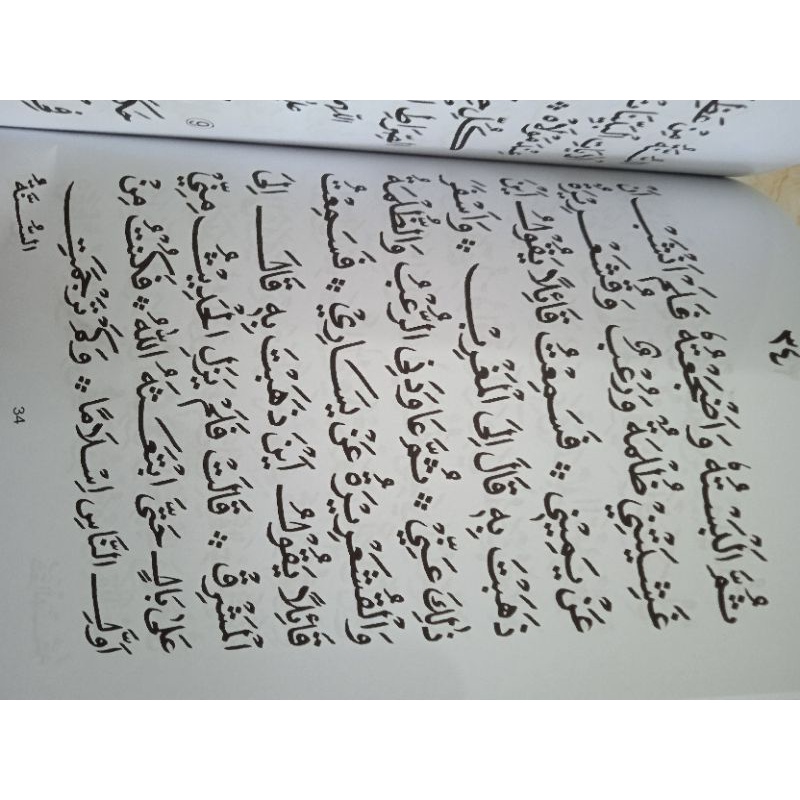 ٣٤
ثُمَّ اَلْبَسْتُهُ وَاَضْجَعْتُهُ فَلَمْ اَنْشَبْ اَنْ
غَشِيَتْنِيْ ظُلْمَةٌ وَرُعْبٌ وَقُشَعْرِيْرَةٌ
عَنْ يَمِيْنِيْ ❊ فَسَمِعْتُ قَائِلًا يَقُوْلُ اَيْنَ
ذَهَبْتَ بِهٖ قَالَ اِلَى الْمَغْرِبِ ❊ وَاَسْفَرَ
ذٰلِكَ عَنِّيْ ❊ ثُمَّ عَاوَدَنِى الرُّعْبُ وَالظُّلْمَةُ
وَالْقُشَعْرِيْرَةُ عَنْ يَسَارِيْ ❊ فَسَمِعْتُ
قَائِلًا يَقُوْلُ اَيْنَ ذَهَبْتَ بِهٖ قَالَ اِلَى
الْمَشْرِقِ ❊ قَالَتْ فَلَمْ يَزَلِ الْحَدِيْثُ مِنِّيْ
عَلٰى بَالٍ حَتَّى ابْتَعَثَهُ اللهُ ❊ فَكُنْتُ مِنْ
اَوَّلِ النَّاسِ اِسْلَامًا ❊ وَكَمْ تَرْجَمَتِ
السُّنَّةُ
34